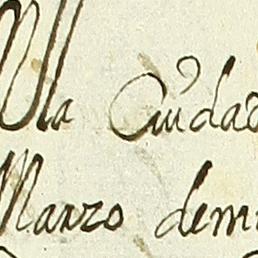 la Ciudad
Marzo demi